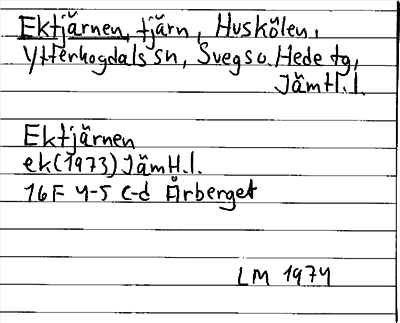 Ektjärnen, tjärn, Huskölen,
Ytterhogdals sn, Svegs o. Hede tg,
Jämtl.l.
Ektjärnen
ek (1973) Jämtl.l.
16F 4-5 c-d Årberget
LM 1974